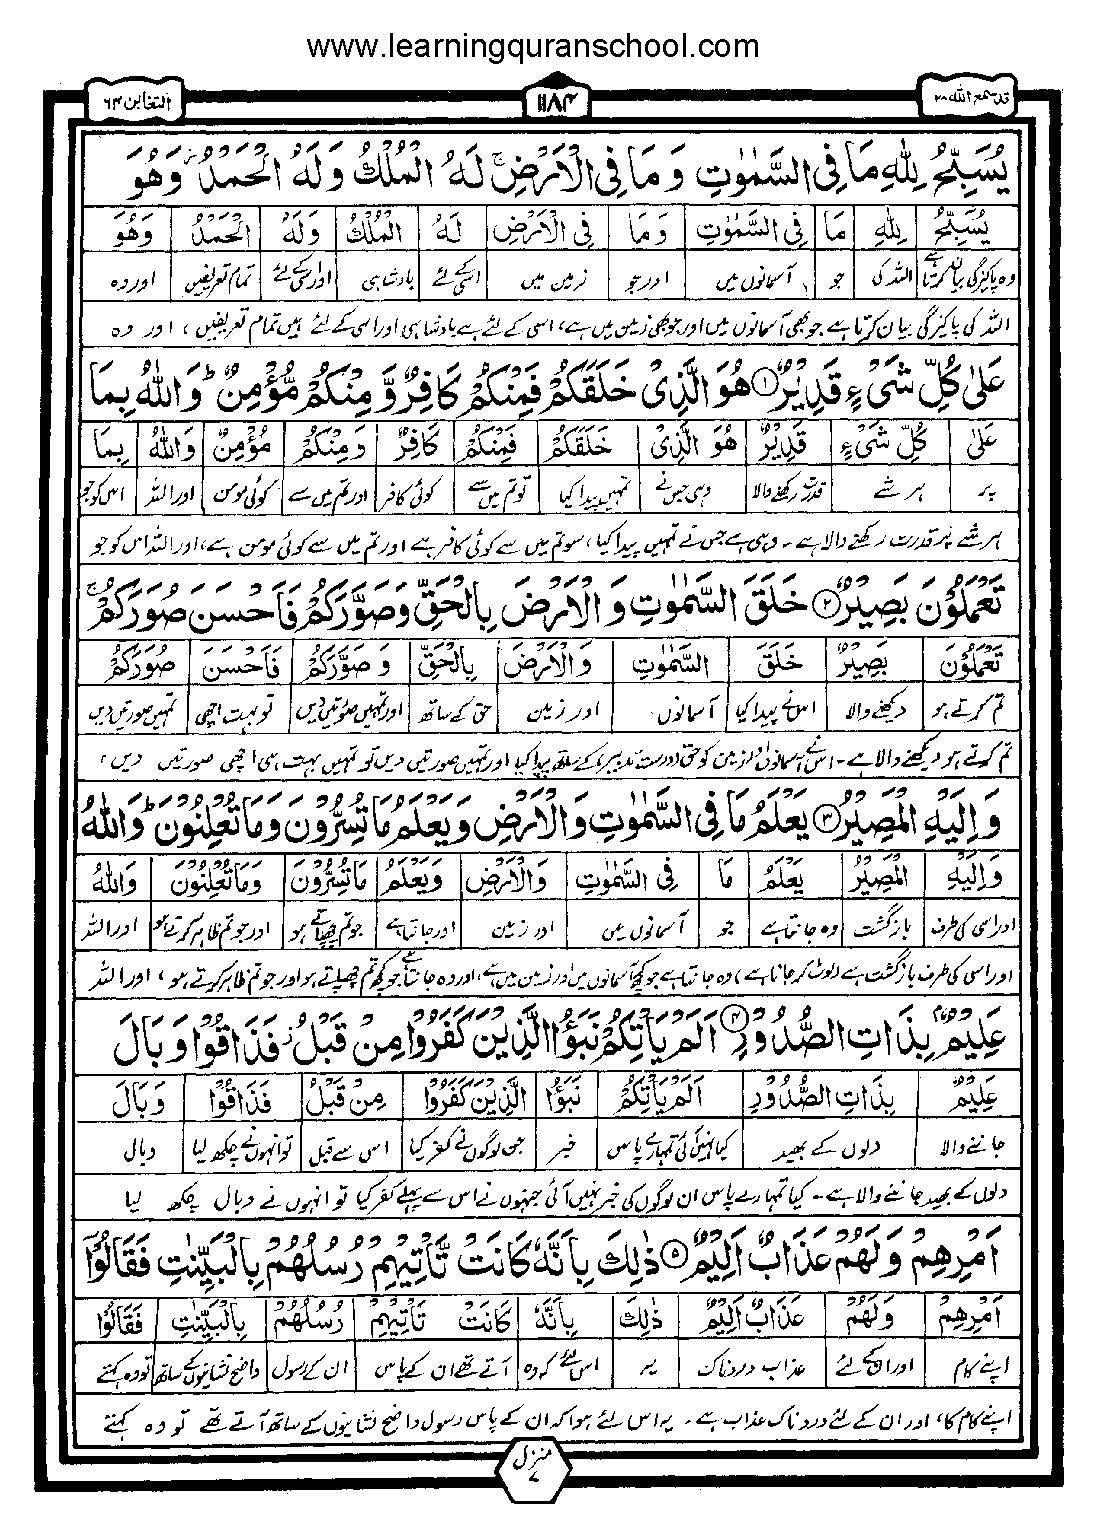 www.learningquranschool.com
قد سمع اللہ ۲۸
۱۱۸۴
التغابن ۶۴
يُسَبِّحُ لِلّٰهِ مَا فِى السَّمٰوٰتِ وَ مَا فِى الْاَرْضِ ۚ لَهُ الْمُلْكُ وَ لَهُ الْحَمْدُ ۫ وَ هُوَ
يُسَبِّحُ لِلّٰهِ مَا فِى السَّمٰوٰتِ وَ مَا فِى الْاَرْضِ لَهُ الْمُلْكُ وَلَهُ الْحَمْدُ وَهُوَ
وہ پاکیزگی بیان کرتا ہے اللہ کی جو آسمانوں میں اور جو زمین میں اسی کے لئے بادشاہی اور اسی کے لئے تمام تعریفیں اور وہ
اللہ کی پاکیزگی بیان کرتا ہے جو بھی آسمانوں میں اور جو بھی زمین میں ہے، اسی کے لئے ہے بادشاہی اور اسی کے لئے ہیں تمام تعریفیں، اور وہ
عَلٰى كُلِّ شَىْءٍ قَدِيْرٌ ۱ هُوَ الَّذِىْ خَلَقَكُمْ فَمِنْكُمْ كَافِرٌ وَّ مِنْكُمْ مُّؤْمِنٌ ؕ وَ اللّٰهُ بِمَا
عَلٰى كُلِّ شَىْءٍ قَدِيْرٌ هُوَ الَّذِىْ خَلَقَكُمْ فَمِنْكُمْ كَافِرٌ وَمِنْكُمْ مُؤْمِنٌ وَاللّٰهُ بِمَا
پر ہر شے قدرت رکھنے والا وہی جس نے تمہیں پیدا کیا تو تم میں سے کوئی کافر اور تم میں سے کوئی مومن اور اللہ اس کو جو
ہر شے پر قدرت رکھنے والا ہے۔ وہی ہے جس نے تمہیں پیدا کیا، سو تم میں سے کوئی کافر ہے اور تم میں سے کوئی مومن ہے، اور اللہ اس کو جو
تَعْمَلُوْنَ بَصِيْرٌ ۲ خَلَقَ السَّمٰوٰتِ وَ الْاَرْضَ بِالْحَقِّ وَ صَوَّرَكُمْ فَاَحْسَنَ صُوَرَكُمْ ۚ
تَعْمَلُوْنَ بَصِيْرٌ خَلَقَ السَّمٰوٰتِ وَالْاَرْضَ بِالْحَقِّ وَ صَوَّرَكُمْ فَاَحْسَنَ صُوَرَكُمْ
تم کرتے ہو دیکھنے والا اس نے پیدا کیا آسمانوں اور زمین حق کے ساتھ اور تمہیں صورتیں دیں تو بہت اچھی تمہیں صورتیں دیں
تم کرتے ہو دیکھنے والا ہے۔ اس نے آسمانوں اور زمین کو حق (درست تدبیر) کے ساتھ پیدا کیا اور تمہیں صورتیں دیں تو تمہیں بہت ہی اچھی صورتیں دیں،
وَ اِلَيْهِ الْمَصِيْرُ ۳ يَعْلَمُ مَا فِى السَّمٰوٰتِ وَ الْاَرْضِ وَ يَعْلَمُ مَا تُسِرُّوْنَ وَ مَا تُعْلِنُوْنَ ؕ وَ اللّٰهُ
وَاِلَيْهِ الْمَصِيْرُ يَعْلَمُ مَا فِى السَّمٰوٰتِ وَالْاَرْضِ وَيَعْلَمُ مَا تُسِرُّوْنَ وَمَا تُعْلِنُوْنَ وَاللّٰهُ
اور اسی کی طرف بازگشت وہ جانتا ہے جو آسمانوں میں اور زمین اور جانتا ہے جو تم چھپاتے ہو اور جو تم ظاہر کرتے ہو اور اللہ
اور اسی کی طرف بازگشت ہے (لوٹ کر جانا ہے) وہ جانتا ہے جو کچھ آسمانوں میں اور زمین میں ہے، اور وہ جانتا ہے جو کچھ تم چھپاتے ہو اور جو تم ظاہر کرتے ہو، اور اللہ
عَلِيْمٌۢ بِذَاتِ الصُّدُوْرِ ۴ اَلَمْ يَاْتِكُمْ نَبَؤُا الَّذِيْنَ كَفَرُوْا مِنْ قَبْلُ ۫ فَذَاقُوْا وَ بَالَ
عَلِيْمٌ بِذَاتِ الصُّدُوْرِ اَلَمْ يَاْتِكُمْ نَبَؤُا الَّذِيْنَ كَفَرُوْا مِنْ قَبْلُ فَذَاقُوْا وَبَالَ
جاننے والا دلوں کے بھید کیا نہیں آئی تمہارے پاس خبر جن لوگوں نے کفر کیا اس سے قبل تو انہوں نے چکھ لیا وبال
دلوں کے بھید جاننے والا ہے۔ کیا تمہارے پاس ان لوگوں کی خبر نہیں آئی جنہوں نے اس سے پہلے کفر کیا تو انہوں نے وبال چکھ لیا
اَمْرِهِمْ وَ لَهُمْ عَذَابٌ اَلِيْمٌ ۵ ذٰلِكَ بِاَنَّهٗ كَانَتْ تَّاْتِيْهِمْ رُسُلُهُمْ بِالْبَيِّنٰتِ فَقَالُوْۤا
اَمْرِهِمْ وَلَهُمْ عَذَابٌ اَلِيْمٌ ذٰلِكَ بِاَنَّهٗ كَانَتْ تَاْتِيْهِمْ رُسُلُهُمْ بِالْبَيِّنٰتِ فَقَالُوْا
اپنے کام اور ان کے لئے عذاب دردناک یہ اس لئے کہ وہ آتے تھے ان کے پاس ان کے رسول واضح نشانیوں کے ساتھ تو وہ کہتے
اپنے کام کا، اور ان کے لئے دردناک عذاب ہے۔ یہ اس لئے ہوا کہ ان کے پاس رسول واضح نشانیوں کے ساتھ آتے تھے تو وہ کہتے
منزل
۷